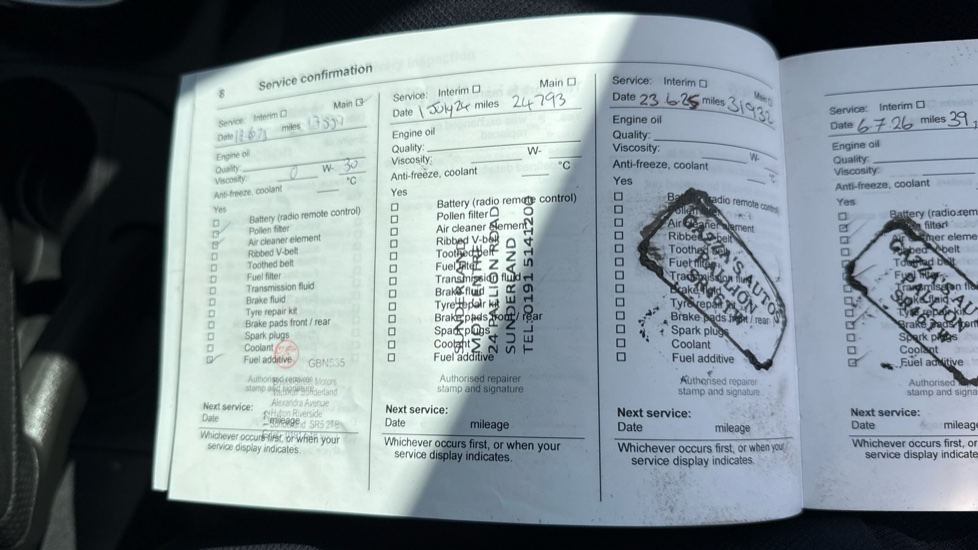 8
Service confirmation
Service: Interim ☐ Main ☑
Date miles
Engine oil
Quality:
Viscosity: 0 W- 30
Anti-freeze, coolant °C
Yes
Battery (radio remote control)
Pollen filter
Air cleaner element
Ribbed V-belt
Toothed belt
Fuel filter
Transmission fluid
Brake fluid
Tyre repair kit
Brake pads front / rear
Spark plugs
Coolant
Fuel additive
GBN535
Authorised repairer
stamp and signature
Alexandra Avenue
Riverside
Next service:
Date mileage
Whichever occurs first, or when your
service display indicates.
Service: Interim ☐ Main ☐
Date 1 July 24 miles 24793
Engine oil
Quality:
Viscosity: W-
Anti-freeze, coolant °C
Yes
Battery (radio remote control)
Pollen filter
Air cleaner element
Ribbed V-belt
Toothed belt
Fuel filter
Transmission fluid
Brake fluid
Tyre repair kit
Brake pads front / rear
Spark plugs
Coolant
Fuel additive
24 PALLION ROAD
SUNDERLAND
TEL: 0191 5141200
Authorised repairer
stamp and signature
Next service:
Date mileage
Whichever occurs first, or when your
service display indicates.
Service: Interim ☐ Main
Date 23 6 25 miles 31932
Engine oil
Quality:
Viscosity: W-
Anti-freeze, coolant °C
Yes
Battery (radio remote control)
Pollen filter
Air cleaner element
Ribbed V-belt
Toothed belt
Fuel filter
Transmission fluid
Brake fluid
Tyre repair kit
Brake pads front / rear
Spark plugs
Coolant
Fuel additive
AUTOS
Authorised repairer
stamp and signature
Next service:
Date mileage
Whichever occurs first, or when your
service display indicates.
Service: Interim ☐
Date 6 7 26 miles 39,
Engine oil
Quality:
Viscosity:
Anti-freeze, coolant
Yes
Battery (radio remote
Pollen filter
Air cleaner element
Ribbed V-belt
Toothed belt
Fuel filter
Transmission flui
Brake fluid
Tyre repair kit
Brake pads fron
Spark plugs
Coolant
Fuel additive
Authorised
stamp and signa
Next service:
Date mileage
Whichever occurs first, or
service display indicat